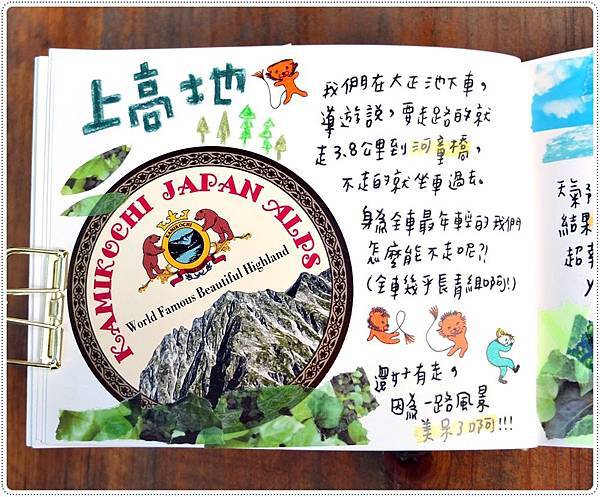 上高地
KAMIKOCHI JAPAN ALPS
KAMIKOCHI
World Famous Beautiful Highland
我們在大正池下車，
導遊說，要走路的就
走3.8公里到河童橋，
不走的就坐車過去。
身為全車最年輕的我們
怎麼能不走呢?!
(全車幾乎長青組啊!)
還好有走，
因為一路風景
美呆了啊!!!
天氣
結果
超
y